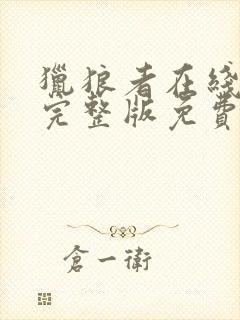 獵狼者在綫
完整版免費
倉一衛